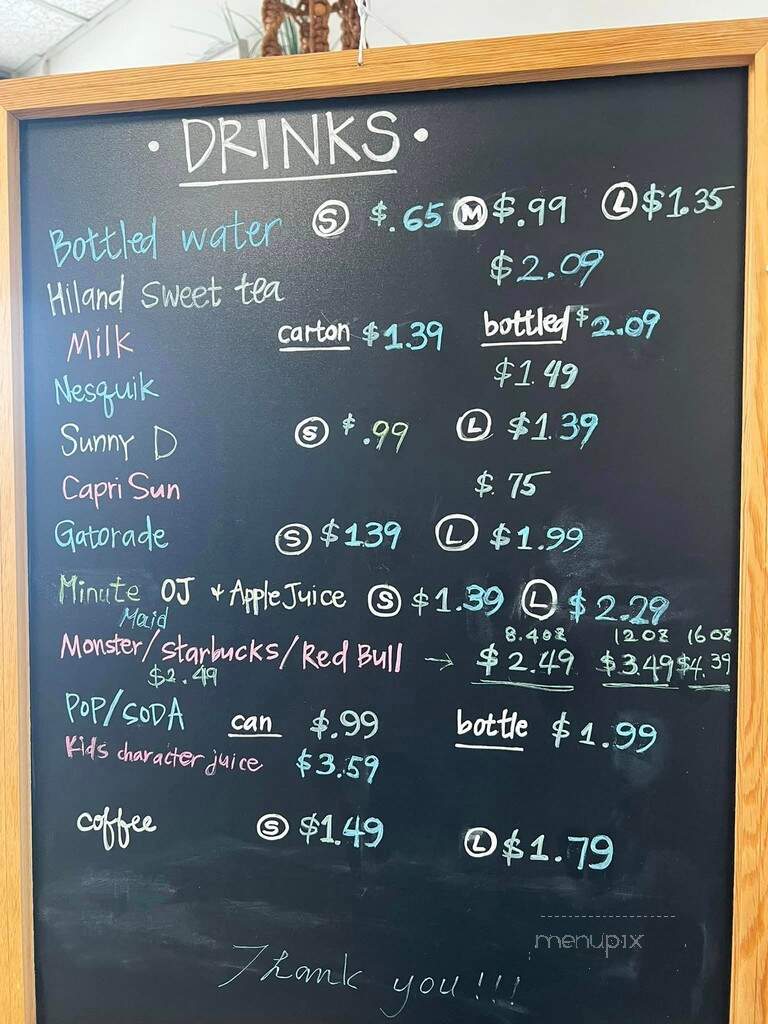 • DRINKS •
Bottled water Ⓢ $.65 Ⓜ $.99 Ⓛ $1.35
Hiland Sweet tea $2.09
Milk carton $1.39 bottled $2.09
Nesquik $1.49
Sunny D Ⓢ $.99 Ⓛ $1.39
Capri Sun $.75
Gatorade Ⓢ $1.39 Ⓛ $1.99
Minute OJ + Apple Juice Ⓢ $1.39 Ⓛ $2.29
Maid 8.4oz 12oz 16oz
Monster/Starbucks/Red Bull → $2.49 $3.49 $4.39
$2.49
POP/SODA can $.99 bottle $1.99
Kids character juice $3.59
coffee Ⓢ $1.49 Ⓛ $1.79
menupix
Thank you!!!